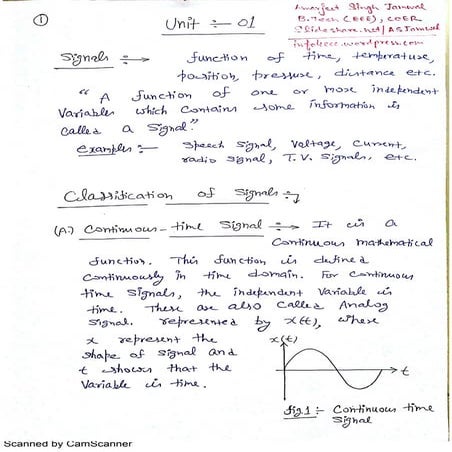 ①
Amarjeet Singh Jamwal
Unit :- 01
B.Tech (EEE), COER
Slideshare.net/ASJamwal
infoeeee.wordpress.com
Signals :→ function of time, temperature,
position, pressure, distance etc.
" A function of one or more independent
Variables which contains some information is
called a Signal."
Examples :- Speech Signal, Voltage, Current,
radio Signal, T.V. Signals, etc.
Classification of Signals :-
(A.) Continuous-time Signal :→ It is a
Continuous mathematical
function. This function is defined
Continuously in time domain. For continuous
time Signals, the independent Variable is
time. These are also Called Analog
Signal. represented by x(t), where
x represent the
shape of signal and
t shows that the
Variable is time.
x(t)
t
fig.1 :- Continuous time
Signal
Scanned by CamScanner